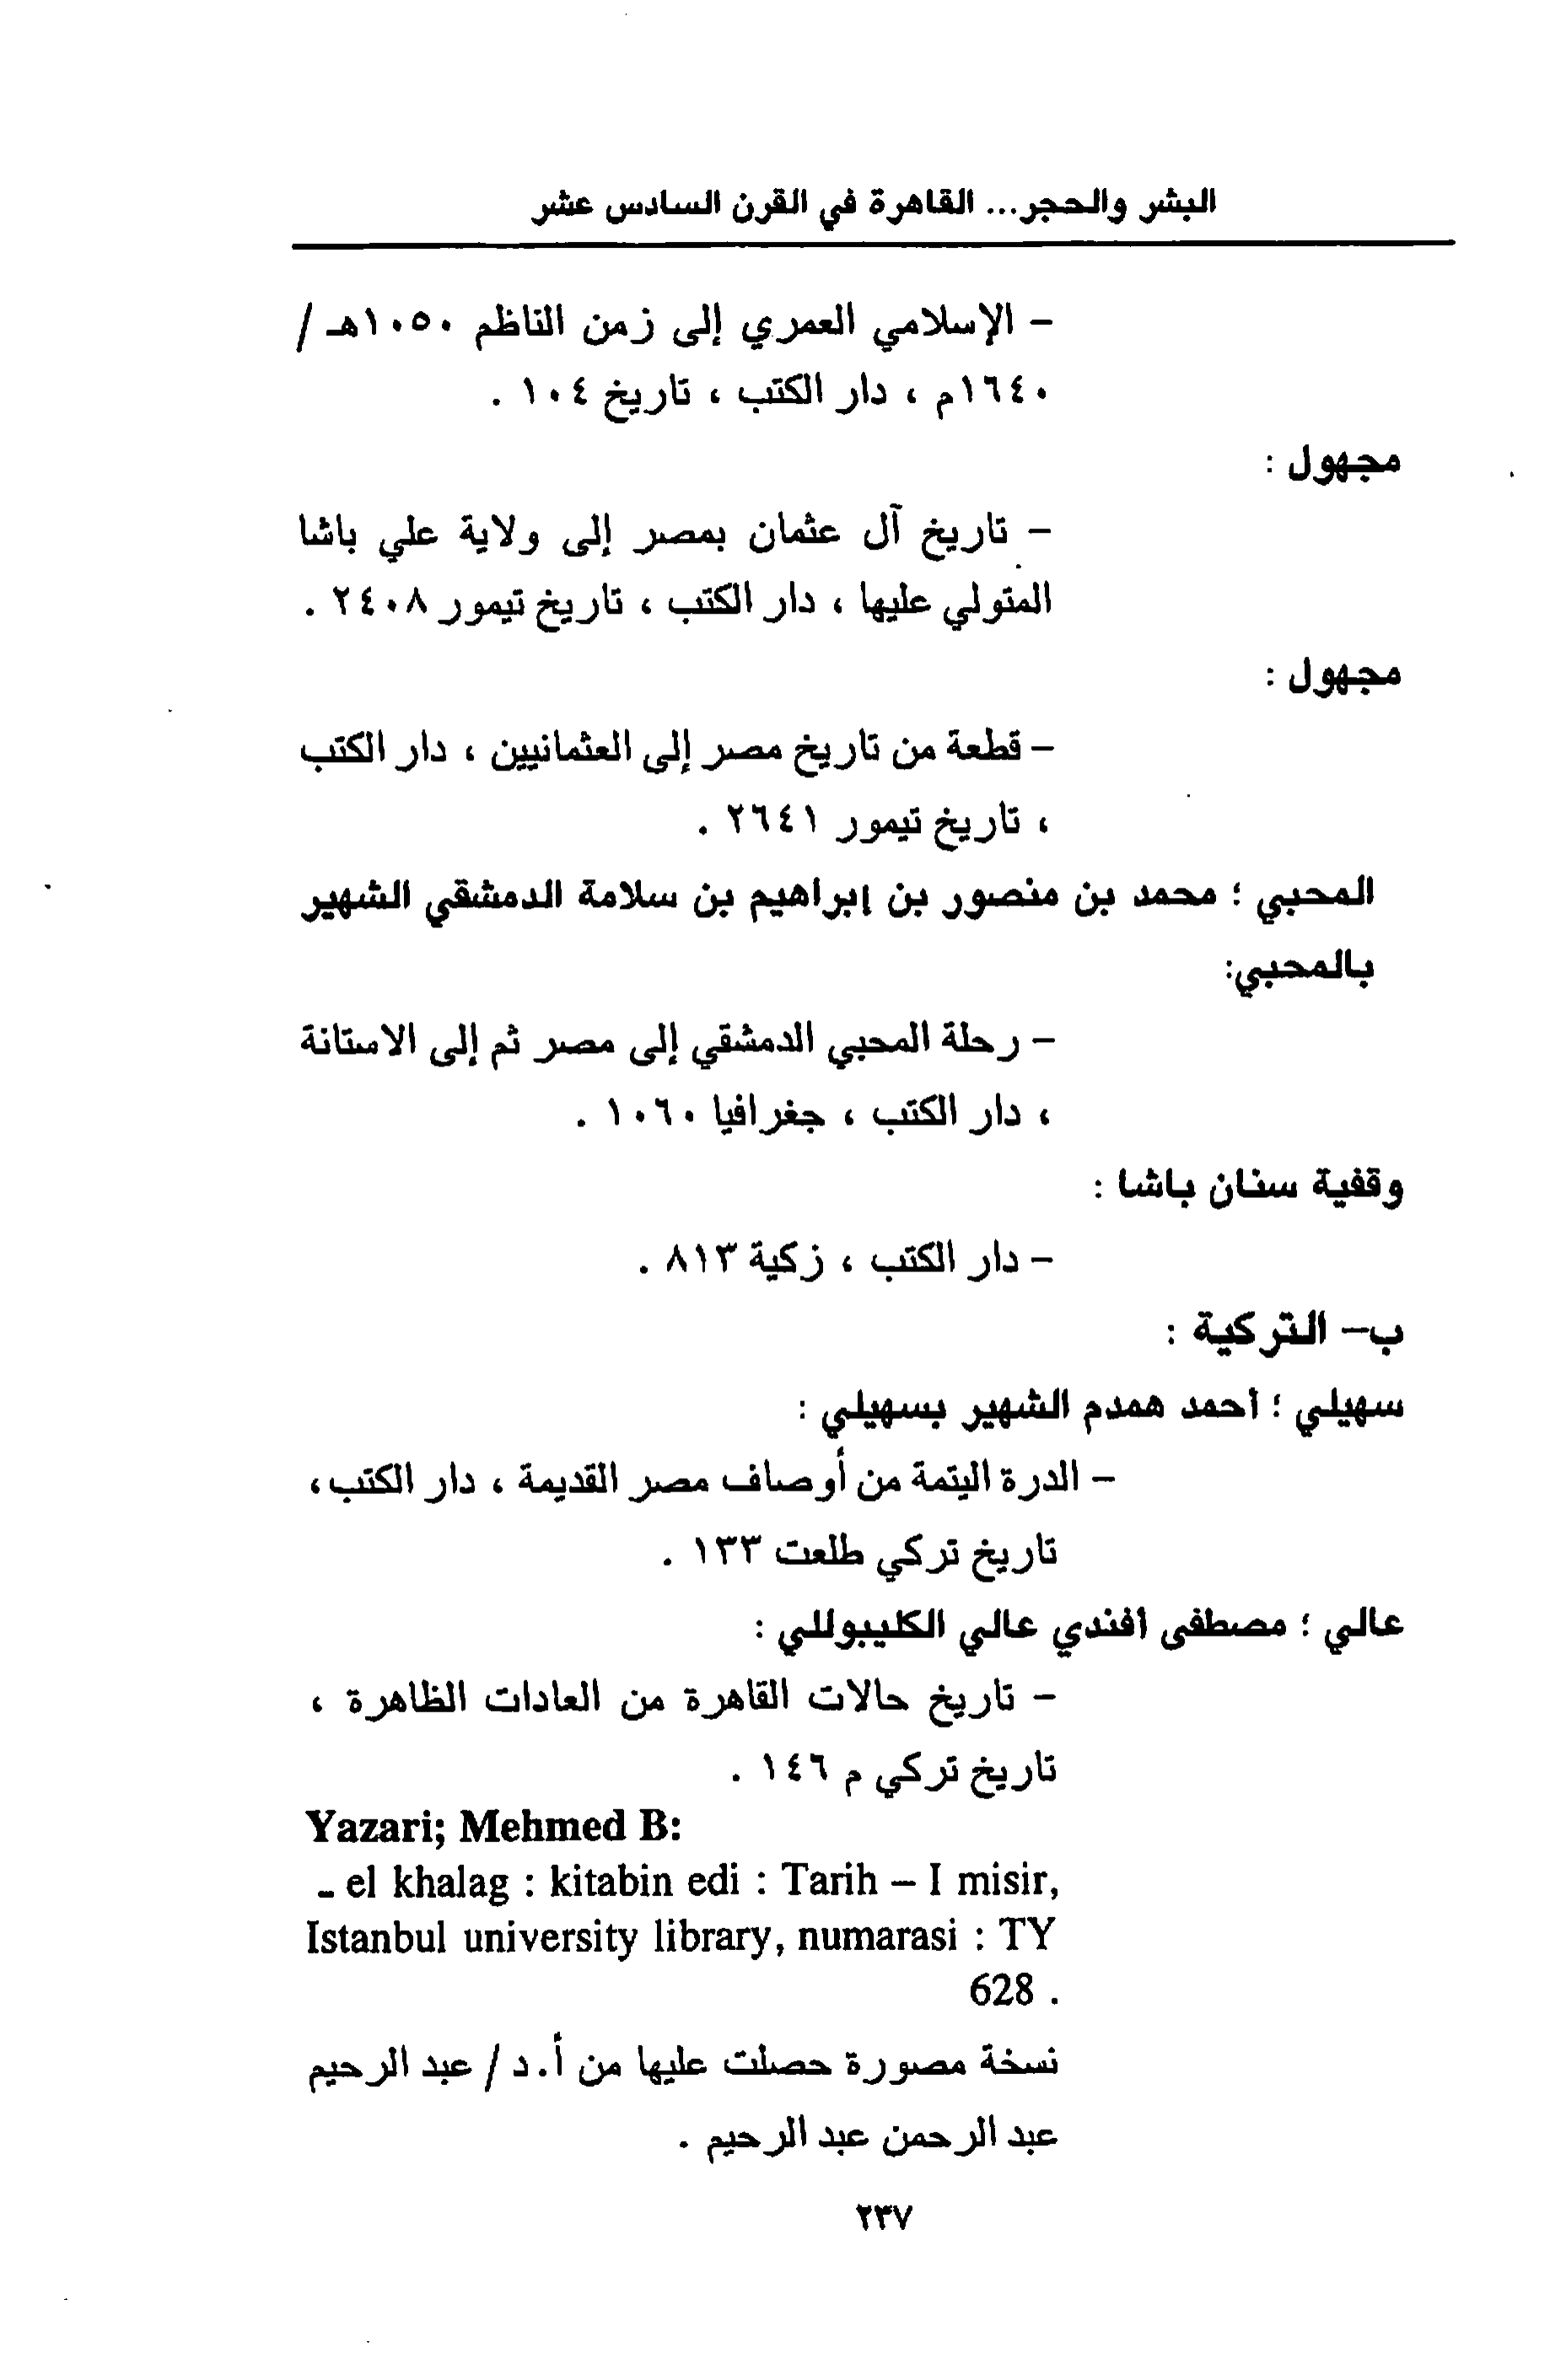 البشر والحجر... القاهرة في القرن السادس عشر
- الإسلامي العمري إلى زمن الناظم ١٠٥٠هـ /
١٦٤٠م ، دار الكتب ، تاريخ ١٠٤ .
مجهول :
- تاريخ آل عثمان بمصر إلى ولاية علي باشا
المتولي عليها ، دار الكتب ، تاريخ تيمور ٢٤٠٨ .
مجهول :
- قطعة من تاريخ مصر إلى العثمانيين ، دار الكتب
، تاريخ تيمور ٢٦٤١ .
المحبي ؛ محمد بن منصور بن إبراهيم بن سلامة الدمشقي الشهير
بالمحبي:
- رحلة المحبي الدمشقي إلى مصر ثم إلى الاستانة
، دار الكتب ، جغرافيا ١٠٦٠ .
وقفية سنان باشا :
- دار الكتب ، زكية ٨١٣ .
ب- التركية :
سهيلي ؛ أحمد همدم الشهير بسهيلي :
- الدرة اليتمة من أوصاف مصر القديمة ، دار الكتب،
تاريخ تركي طلعت ١٣٣ .
عالي ؛ مصطفى أفندي عالي الكليبوللي :
- تاريخ حالات القاهرة من العادات الظاهرة ،
تاريخ تركي م ١٤٦ .
Yazari; Mehmed B:
- el khalag : kitabin edi : Tarih – I misir,
Istanbul university library, numarasi : TY
628 .
نسخة مصورة حصلت عليها من أ.د / عبد الرحيم
عبد الرحمن عبد الرحيم .
٢٣٧